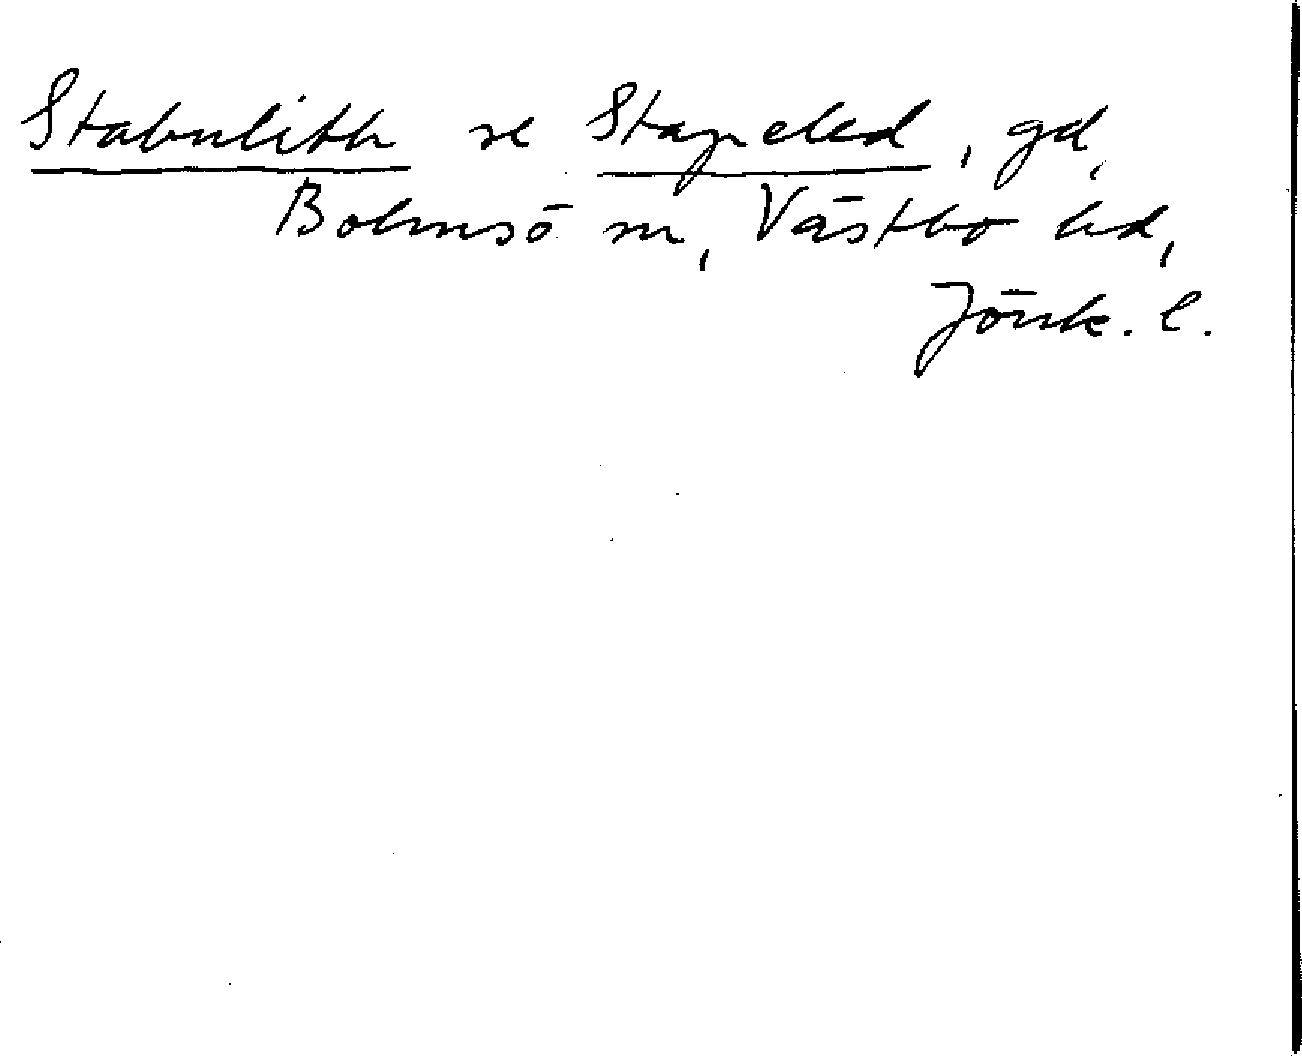 Stabulith se Stapeled, gd,
Bolmsö sn, Västbo hd,
Jönk. l.